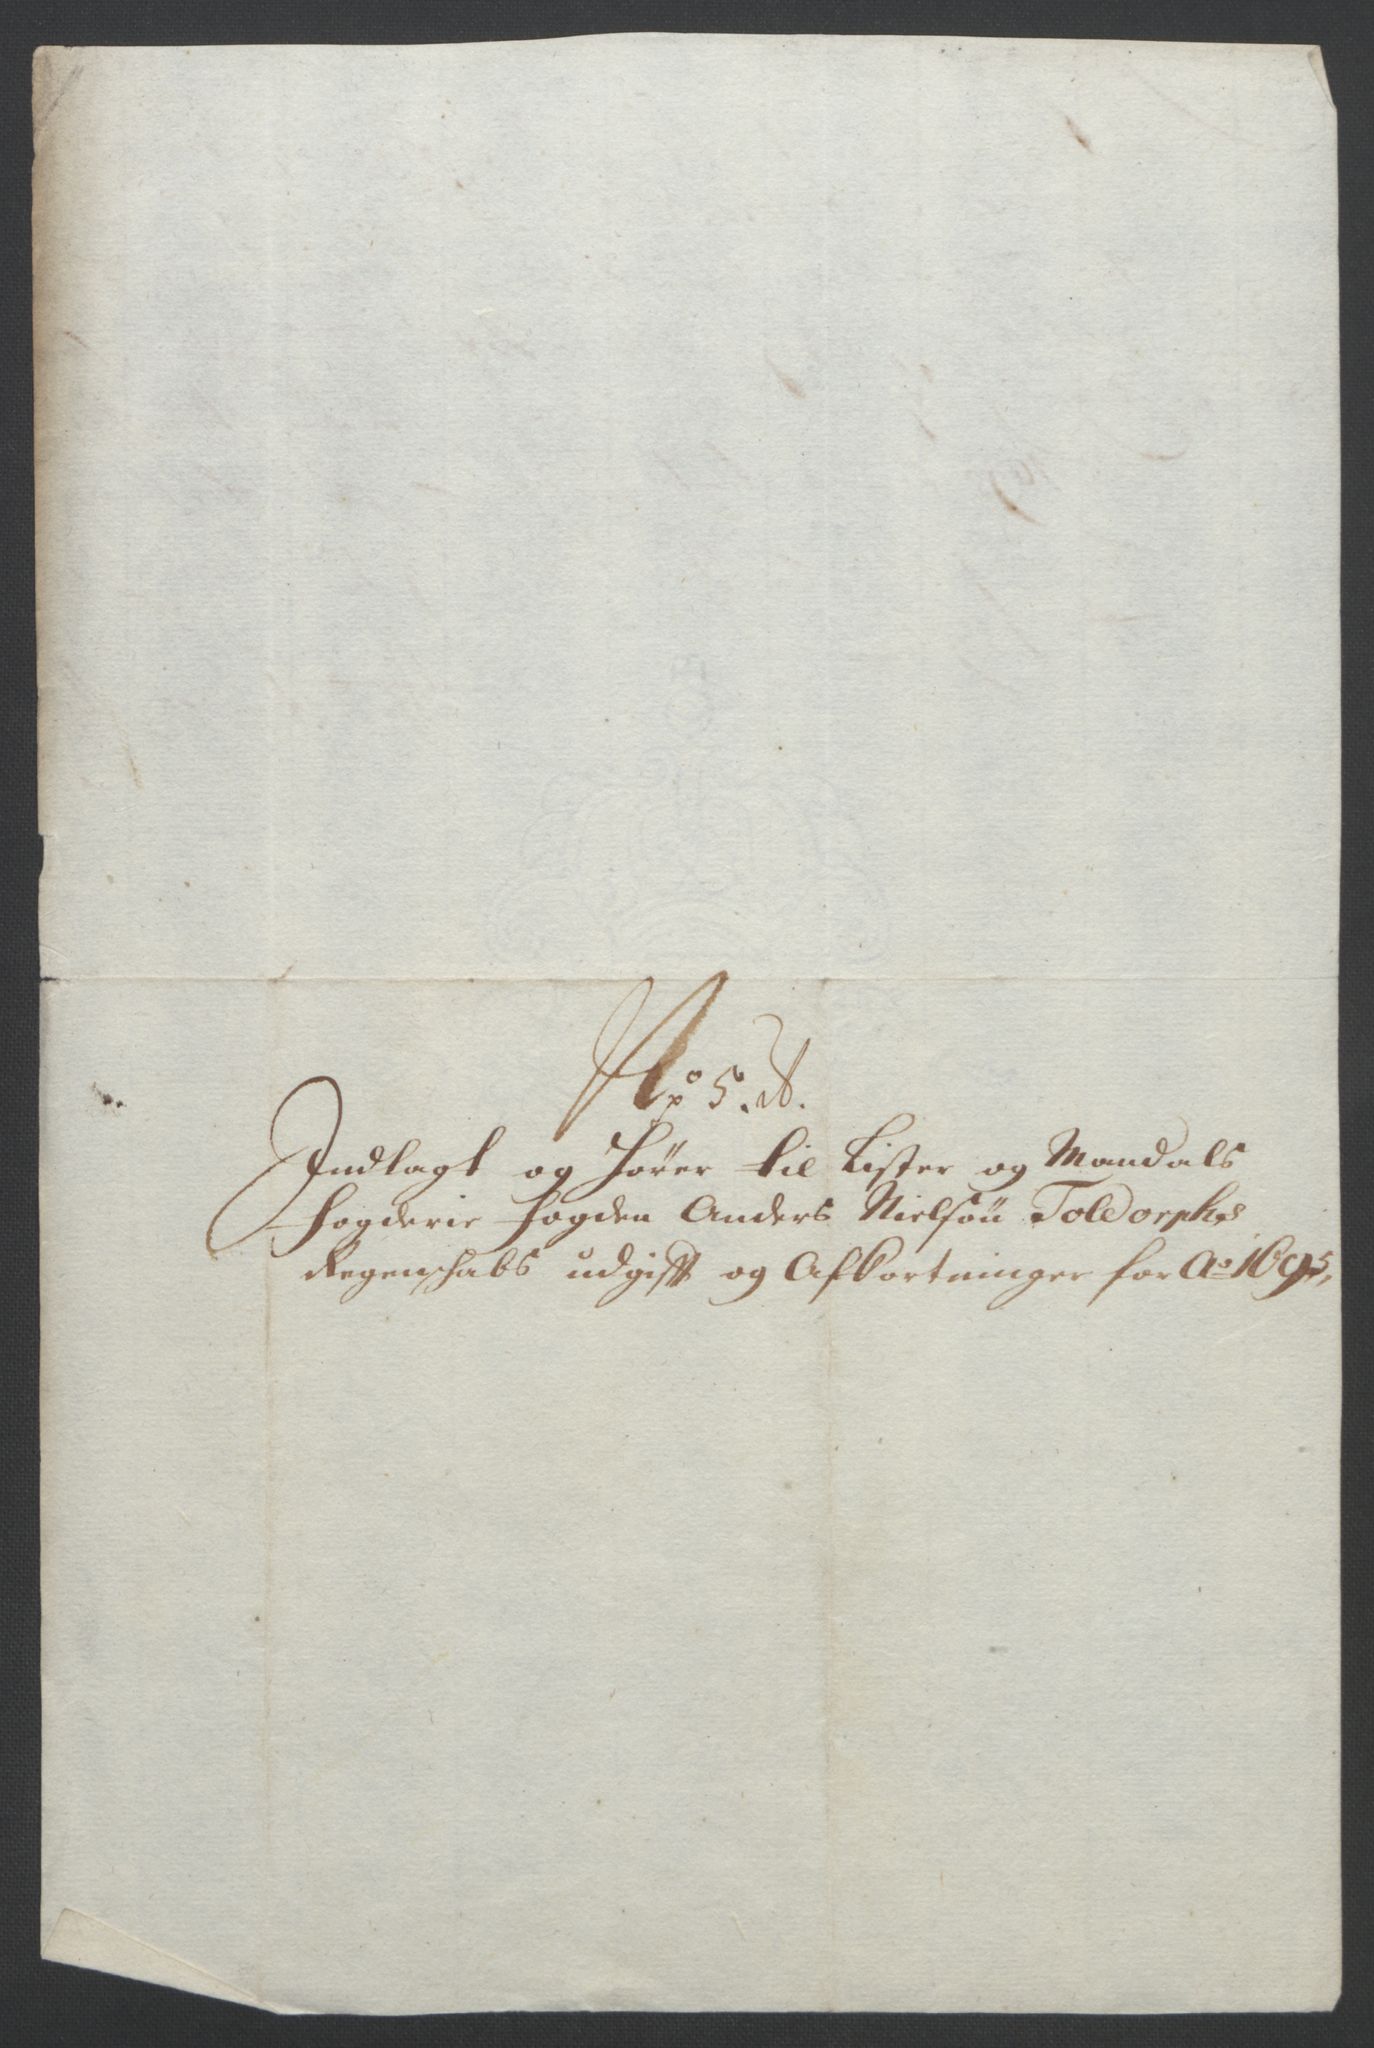 No 5. A.
Indlagt og hører til Lister og Mandals
fogderie fogden Anders Nielsøn Toldorphs
Regenschabs udgift og Afkortninger for Ao 1695,